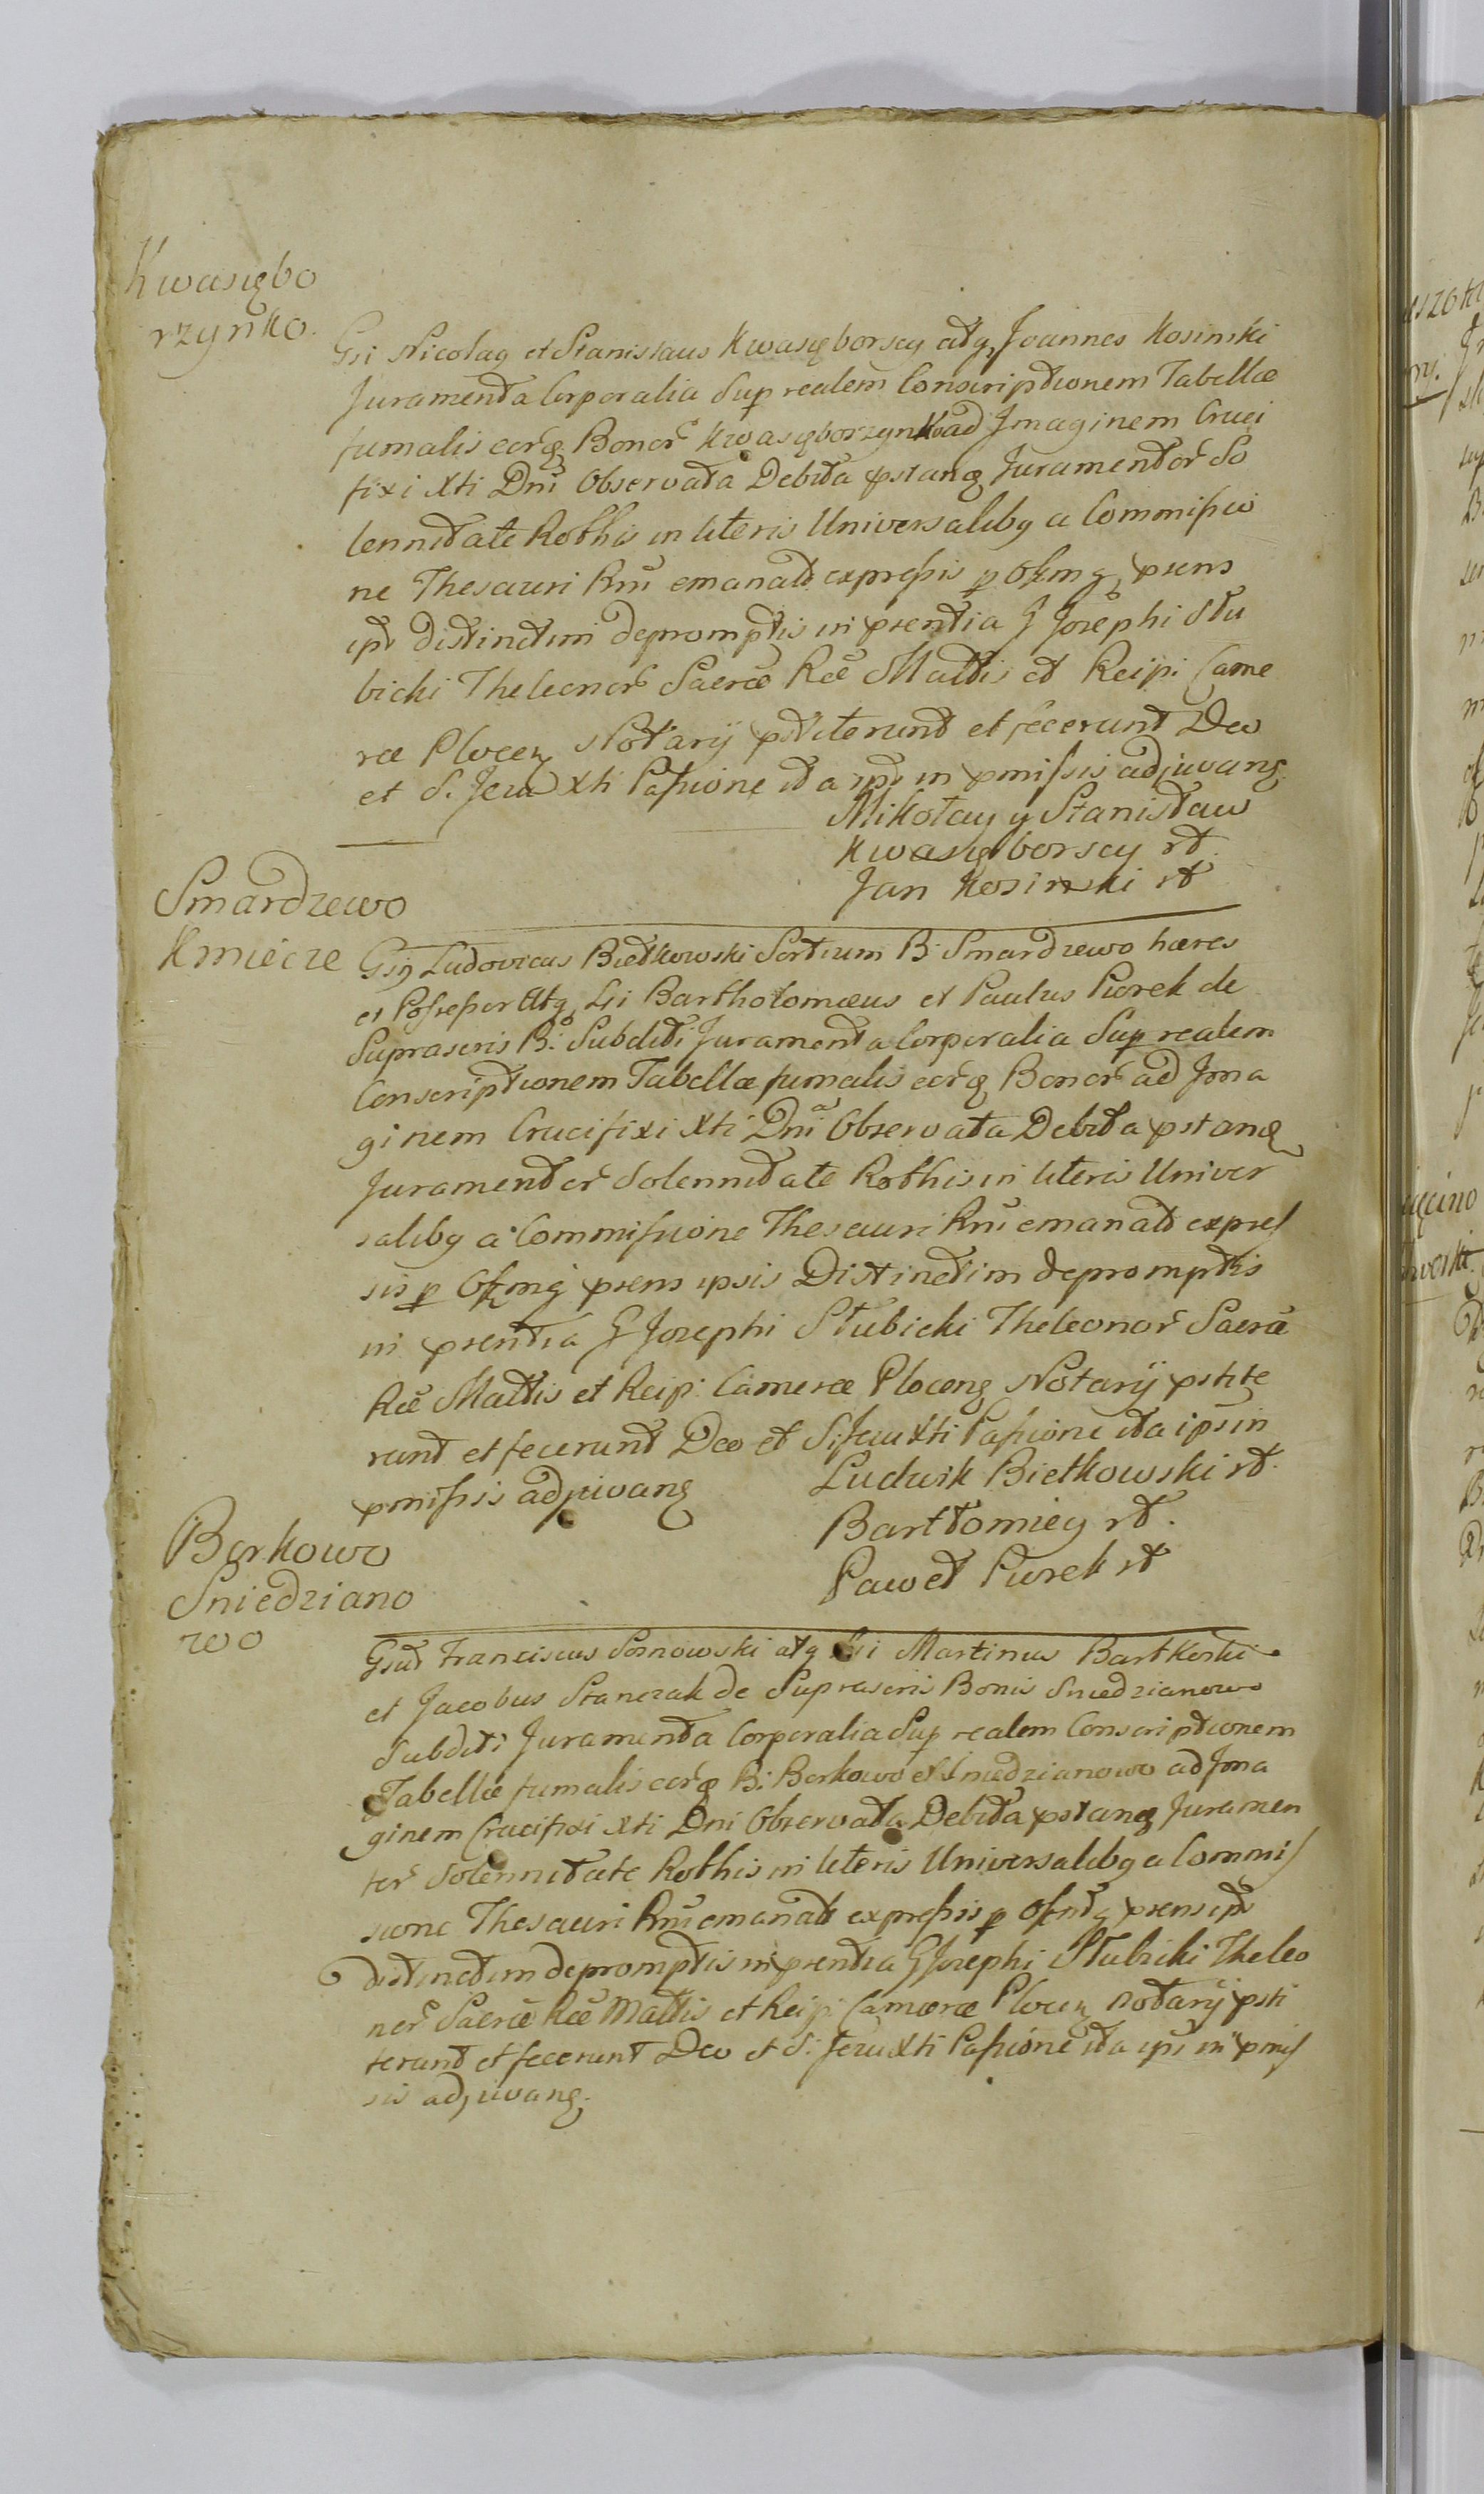 Kwasiębo
rzynko.
Gsi Nicolaq et Stanislaus Kwasięborscy atq Joannes Kosinski
Juramenta Corporalia Sup realem Conscriptionem Tabellæ
fumalis eorq Bonor Kwasięborzynko ad Jmaginem Cruci
fixi Xti Dni Observata Debita pstanq Juramentor So
lennitate Rothis in literis Universalibq a Commissio
ne Thesauri Rni emanatt expressis p Offmq psens
ips distinctim depromptis in psentia G Josephi Słu
bicki Theleonor Sacræ Ræ Mattis et Reipi Came
ræ Plocen Notarij pstiterunt et fecerunt Deo
et S. Jesu Xti Passione ita ips in pmissis adjuvanq
Mikołay y Stanisław
Kwasięborscy rt
Jan Kosinski rt
Smardzewo
Kmiecze
Gsq Ludovicus Bietkowski Sortium B: Smardzewo hæres
et Possessor Atq Li Bartholomæus et Paulus Piorek de
Suprascris B: Subditi Juramenta Corporalia Sup realem
Conscriptionem Tabellæ fumalis eorq Bonor ad Jma
ginem Crucifixi Xti Dni Observata Debita pstanq
Juramentor Solennitate Rothis in literis Univer
salibq a Commissione Thesauri Rni emanatt expres
sis p Offmq psens ipsis Distinctim depromptis
in psentia G Josephi Słubicki Theleonor Sacræ
Ræ Mattis et Reip: Cameræ Plocenq Notarij pstite
runt et fecerunt Deo et S. Jesu Xti Passione ita ips in
pmissis adjuvanq
Ludwik Bietkowski rt.
Bartłomiey rt.
Paweł Piorek rt
Borkowo
Sniedziano
wo
Gsus Franciscus Sosnowski atq Li Martinus Bartkoski
et Jacobus Stanczak de Suprascris Bonis Sniedzianowo
Subditi Juramenta Corporalia Sup realem Conscriptionem
Tabellæ fumalis eorq B: Borkowo et Sniedzianowo ad Jma
ginem Crucifixi Xti Dni Observata Debita pstanq Juramen
tor Solennitate Rothis in literis Universalibq a Commis
sione Thesauri Rni emanatt expressis p psens ips
distinctim depromptis in psentia G Josephi Słubicki Theleo
nor Sacræ Ræ Mattis et Reip: Cameræ Plocen Notarij psti
terunt et fecerunt Deo et S. Jesu Xti Passione ita ips in pmis
sis adjuvanq.